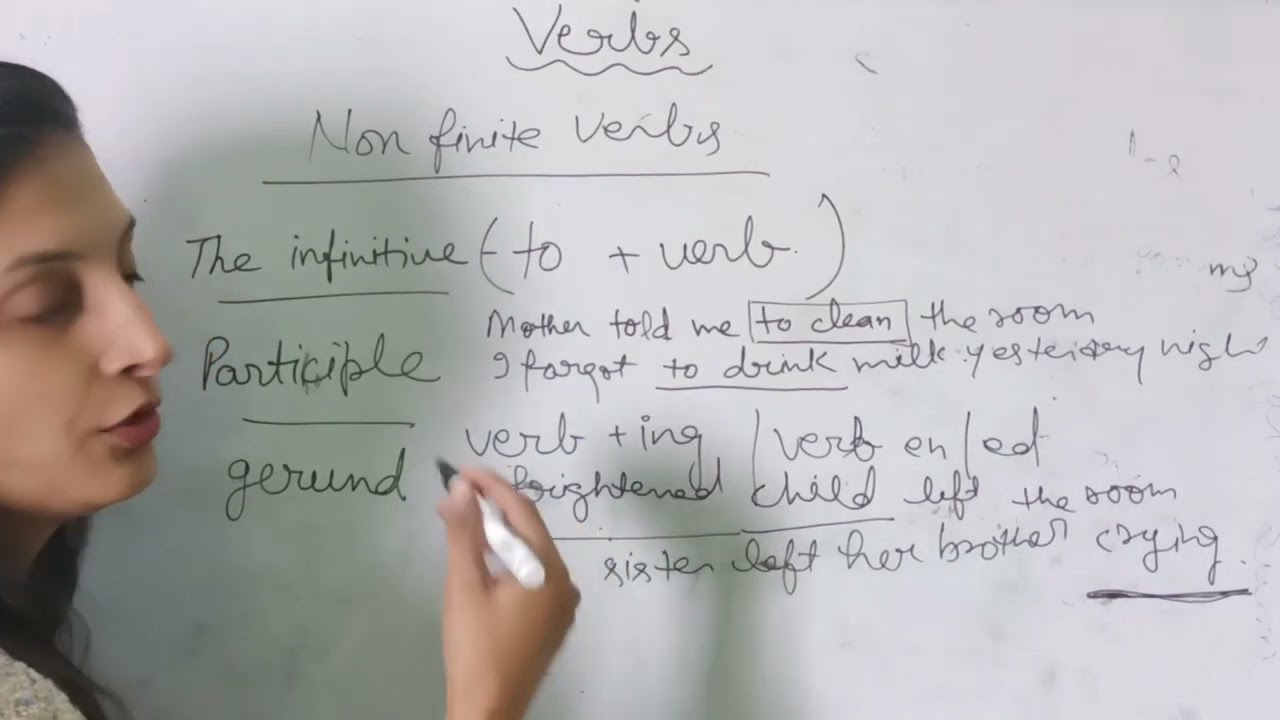 Verbs
Non finite verbs
The infinitive (to + verb.)
Mother told me to clean the room
Participle I forgot to drink milk yesterday nigh
verb + ing / verb en / ed
gerund frightened child left the room
sister left her brother crying.
my